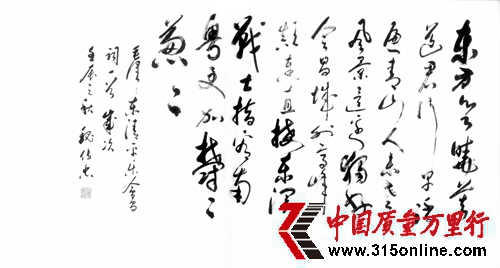 东方欲晓莫
道君行早踏
遍青山人未老
风景这边独好
会昌城外高峰
颠连直接东溟
战士指看南
粤更加郁々
葱々
毛泽东清平乐会昌
词一首
壬辰之秋 魏传忠
中国质量万里行
www.315online.com